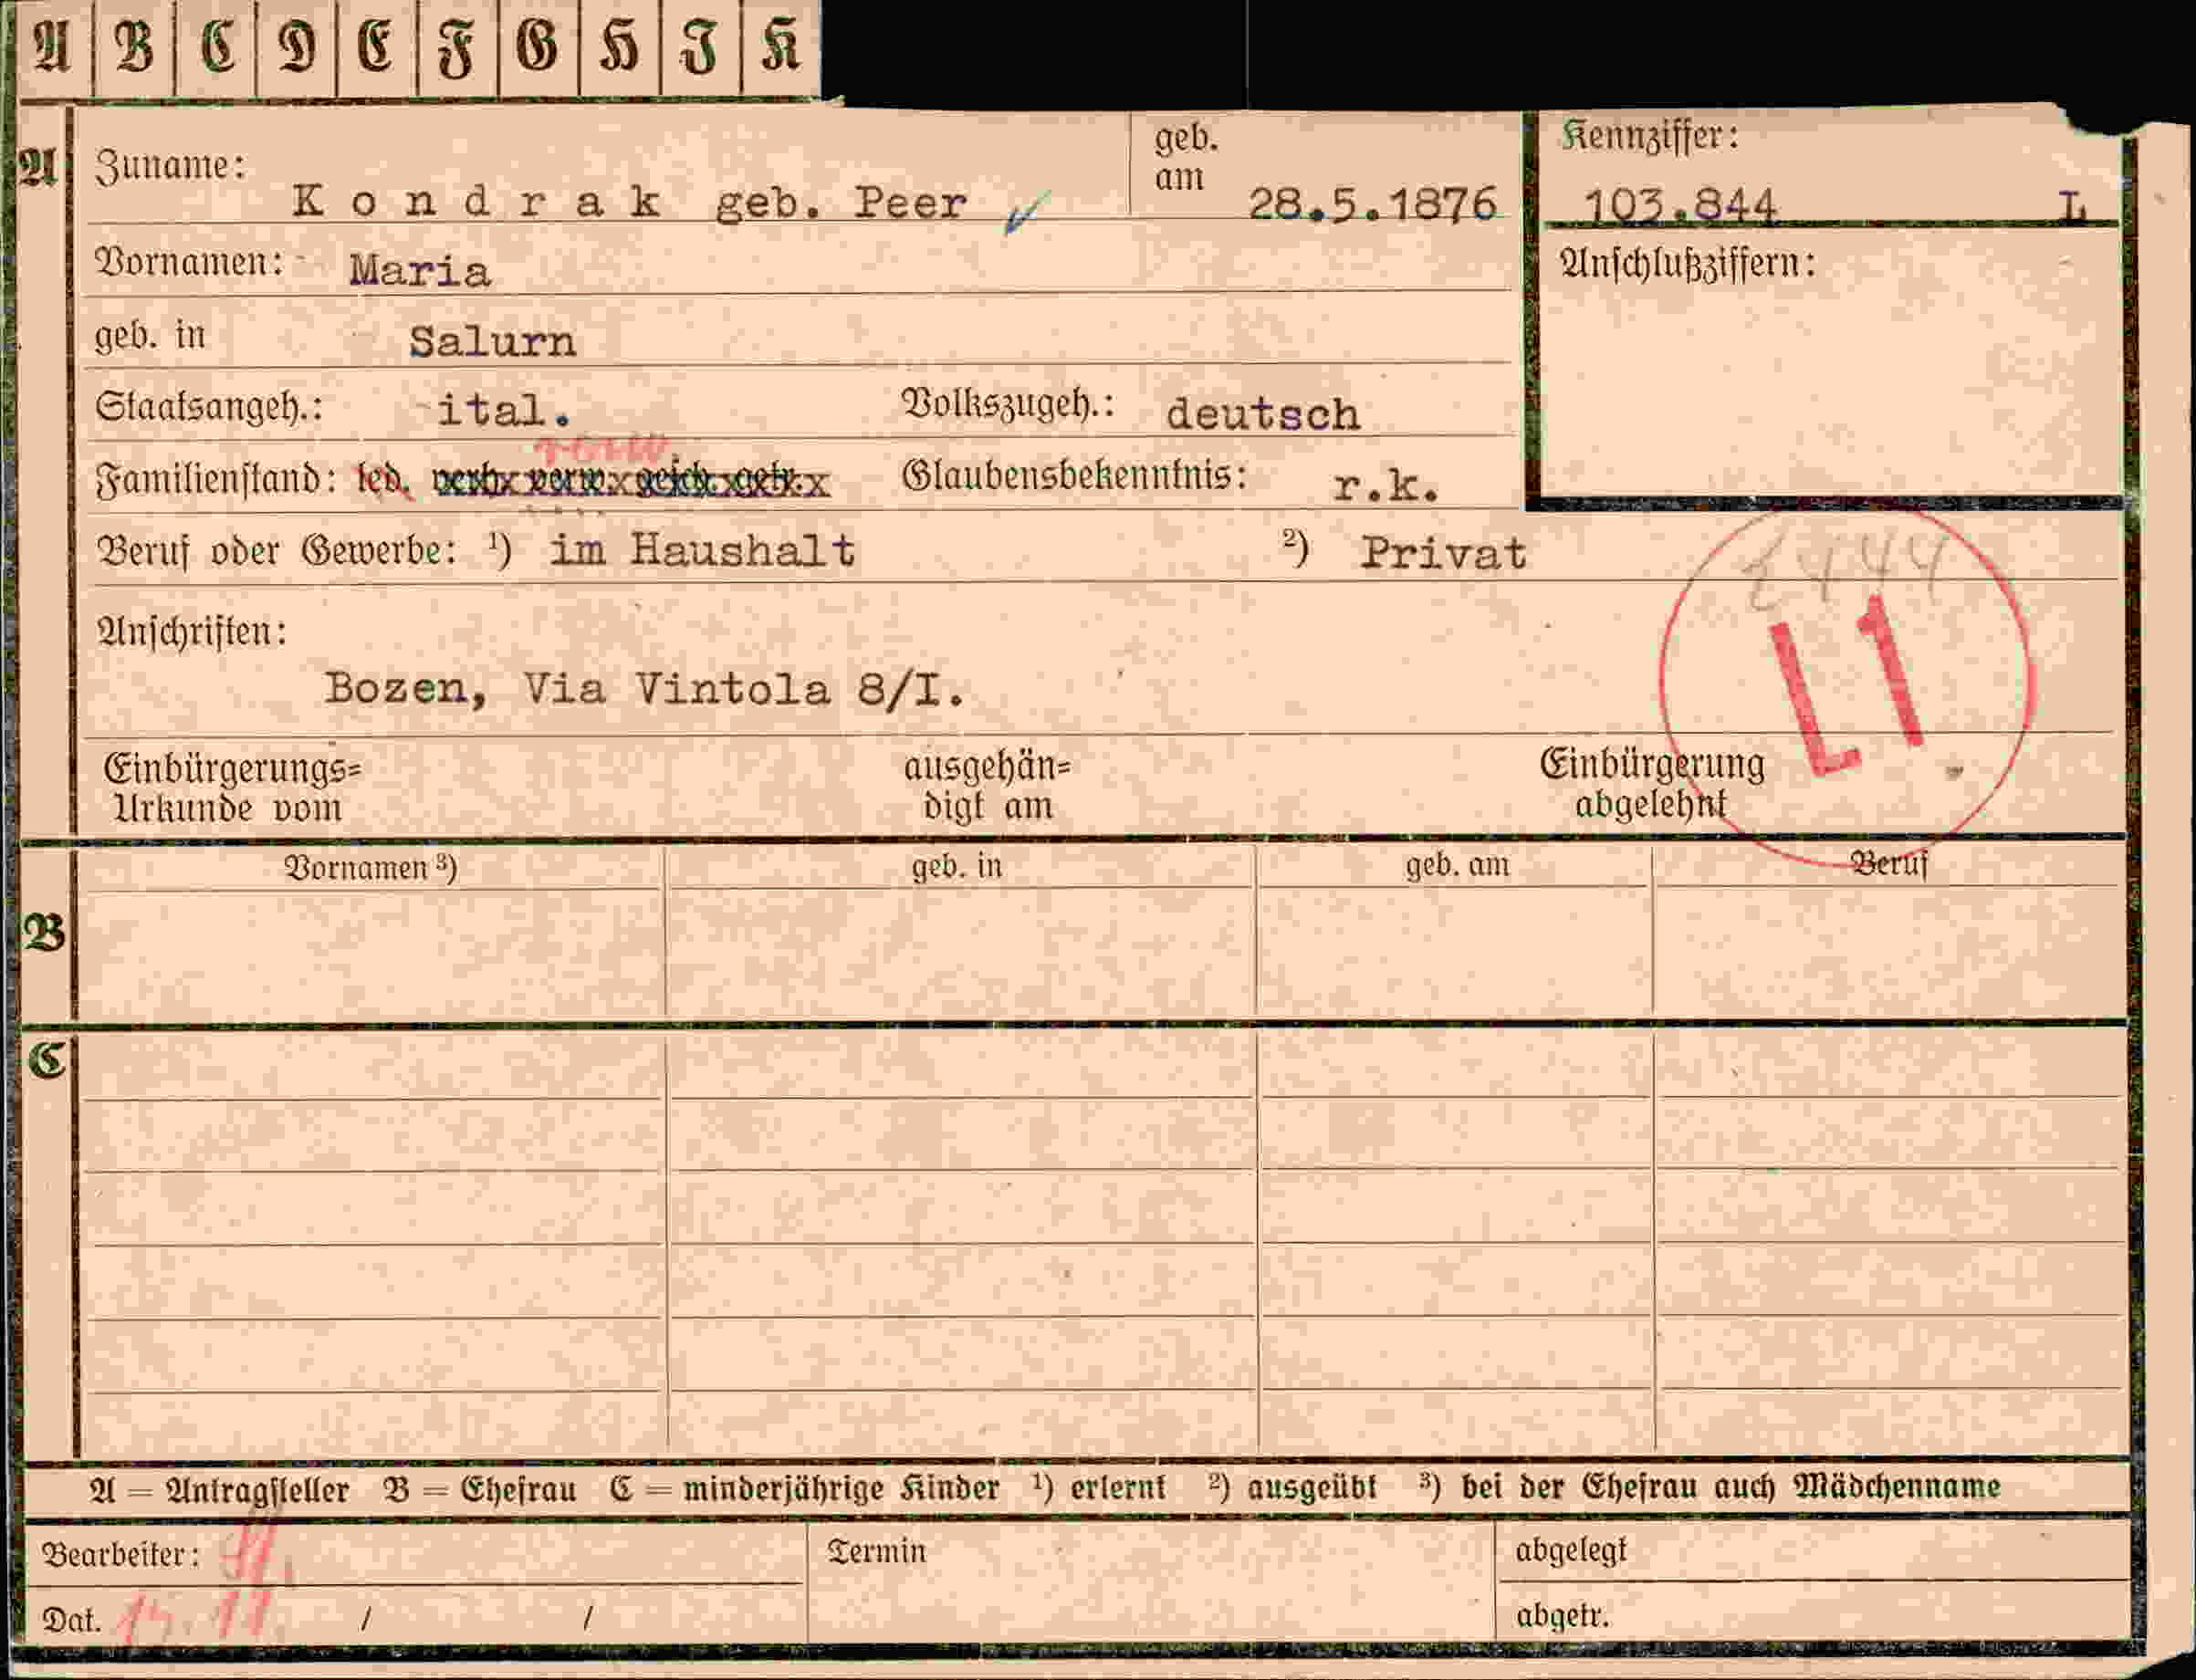 A B C D E F G H J K
A Zuname: Kondrak geb. Peer geb. am 28.5.1876
Kennziffer: 103.844 L
Vornamen: Maria
Anschlußziffern:
geb. in Salurn
Staatsangeh.: ital. Volkszugeh.: deutsch
verw
Familienstand: led. verh. verw. gesch. getr. Glaubensbekenntnis: r.k.
Beruf oder Gewerbe: ¹) im Haushalt ²) Privat
Anschriften:
L1
Bozen, Via Vintola 8/I.
Einbürgerungs= ausgehän= Einbürgerung
Urkunde vom digt am abgelehnt
Vornamen ³) geb. in geb. am Beruf
B
C
A = Antragsteller B = Ehefrau C = minderjährige Kinder ¹) erlernt ²) ausgeübt ³) bei der Ehefrau auch Mädchenname
Bearbeiter: Termin abgelegt
Dat. / / abgetr.